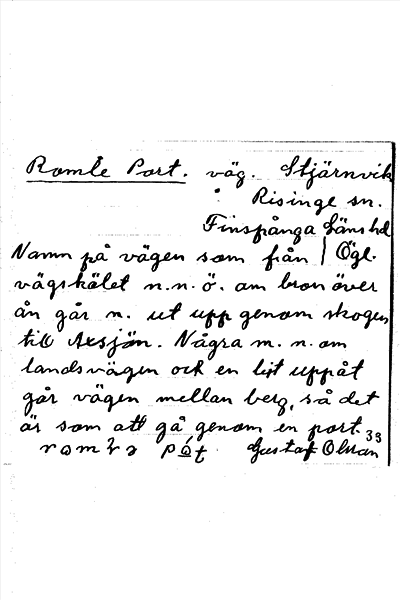 Romle Port. väg. Stjärnvik
Risinge sn.
Finspånga läns hd
Namn på vägen som från | Ögl.
vägskälet n.n.ö. om bron över
ån går n. ut upp genom skogen
till Axsjön. Några m. n. om
landsvägen och en bit uppåt
går vägen mellan berg, så det
är som att gå genom en port.
33
Gustaf Olsson